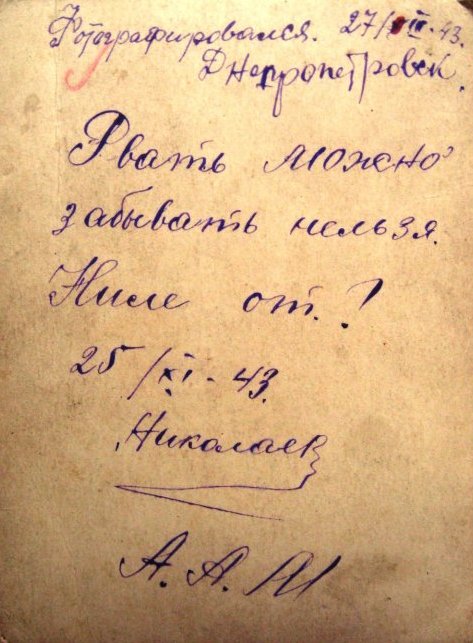 Фотографировался.
Днепропетровск.
Рвать можно
забывать нельзя.
Ниле от.!
25/XI-43.
Николаев
А. А.